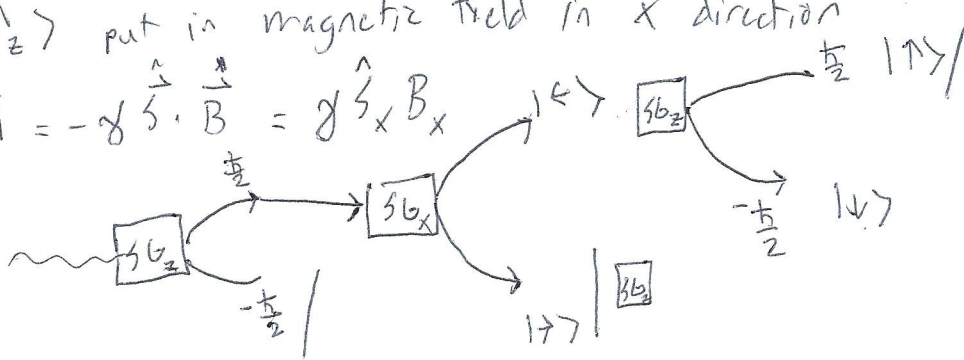 z⟩ put in magnetic field in x direction
= -γ Ŝ⃗ · B⃗ = γ Ŝ_x B_x
|←⟩
SG_z
ħ/2 |↑⟩
-ħ/2 |↓⟩
SG_z
ħ/2
-ħ/2
SG_x
|→⟩
SG_z